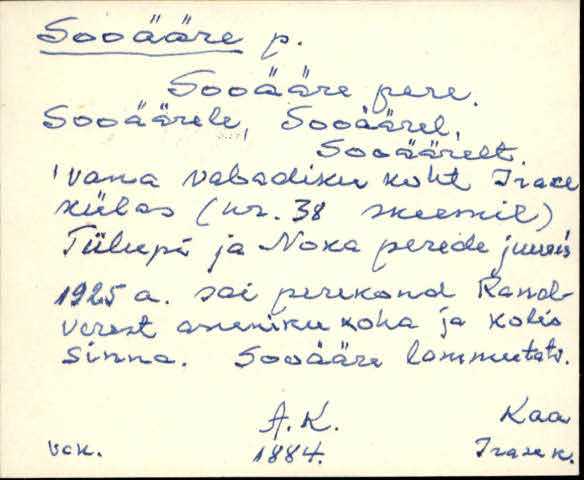 Sooääre p.
Sooääre pere.
Sooäärele, Sooäärel,
Sooäärelt.
'Vana vabadiku koht Irase
külas (nr. 38 skeemil)
ja Noka perede juures
1925 a. sai perekond Rand-
verest asuniku koha ja kolis
sinna. Sooääre lammutati.
A.K. Kaa
1884. Irase k.